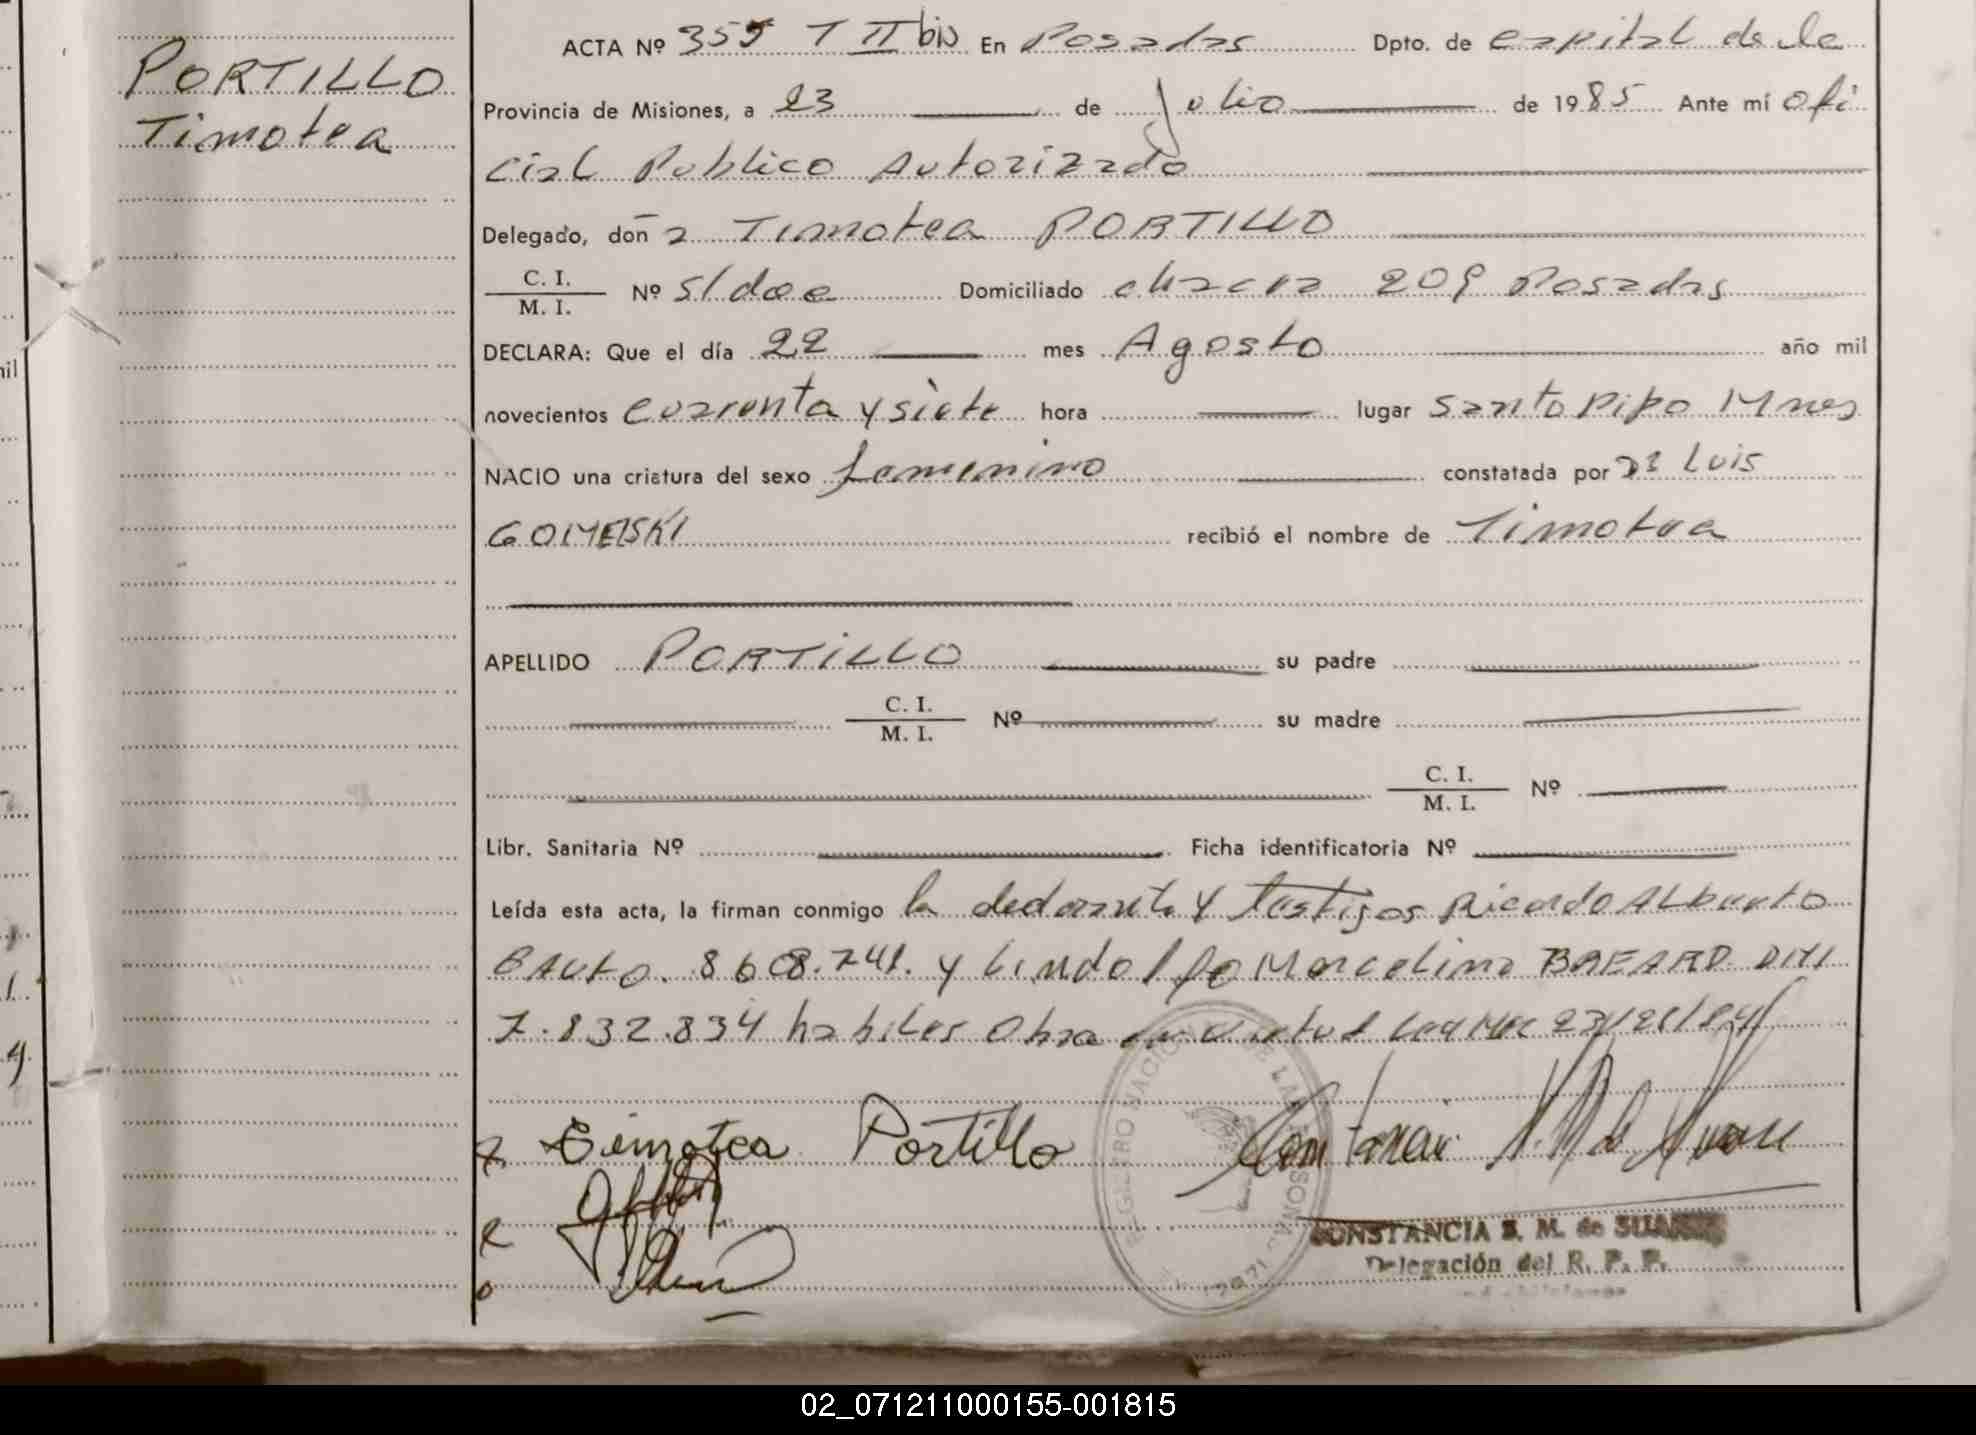 PORTILLO
Timotea
ACTA Nº 355 T II bis En Posadas Dpto. de capital de la
Provincia de Misiones, a 23 de Julio de 1985 Ante mí ofi
cial Publico Autorizado
Delegado, doña Timotea PORTILLO
C. I.
M. I. Nº s/doc Domiciliado chacra 209 Posadas
DECLARA: Que el día 22 mes Agosto año mil
novecientos cuarenta y siete hora lugar Santo Pipo Mnes
NACIO una criatura del sexo femenino constatada por Dr Luis
recibió el nombre de Timotea
APELLIDO PORTILLO su padre
C. I.
M. I. Nº su madre
C. I.
M. I. Nº
Libr. Sanitaria Nº Ficha identificatoria Nº
Leída esta acta, la firman conmigo la declarante y testigos Ricardo Alberto
8.608.741. y Lindolfo Marcelino DNI
7.832.834 habiles Obra
Timotea Portillo
CONSTANCIA S. M. de SUAREZ
Delegación del R. P. P.
02_071211000155-001815